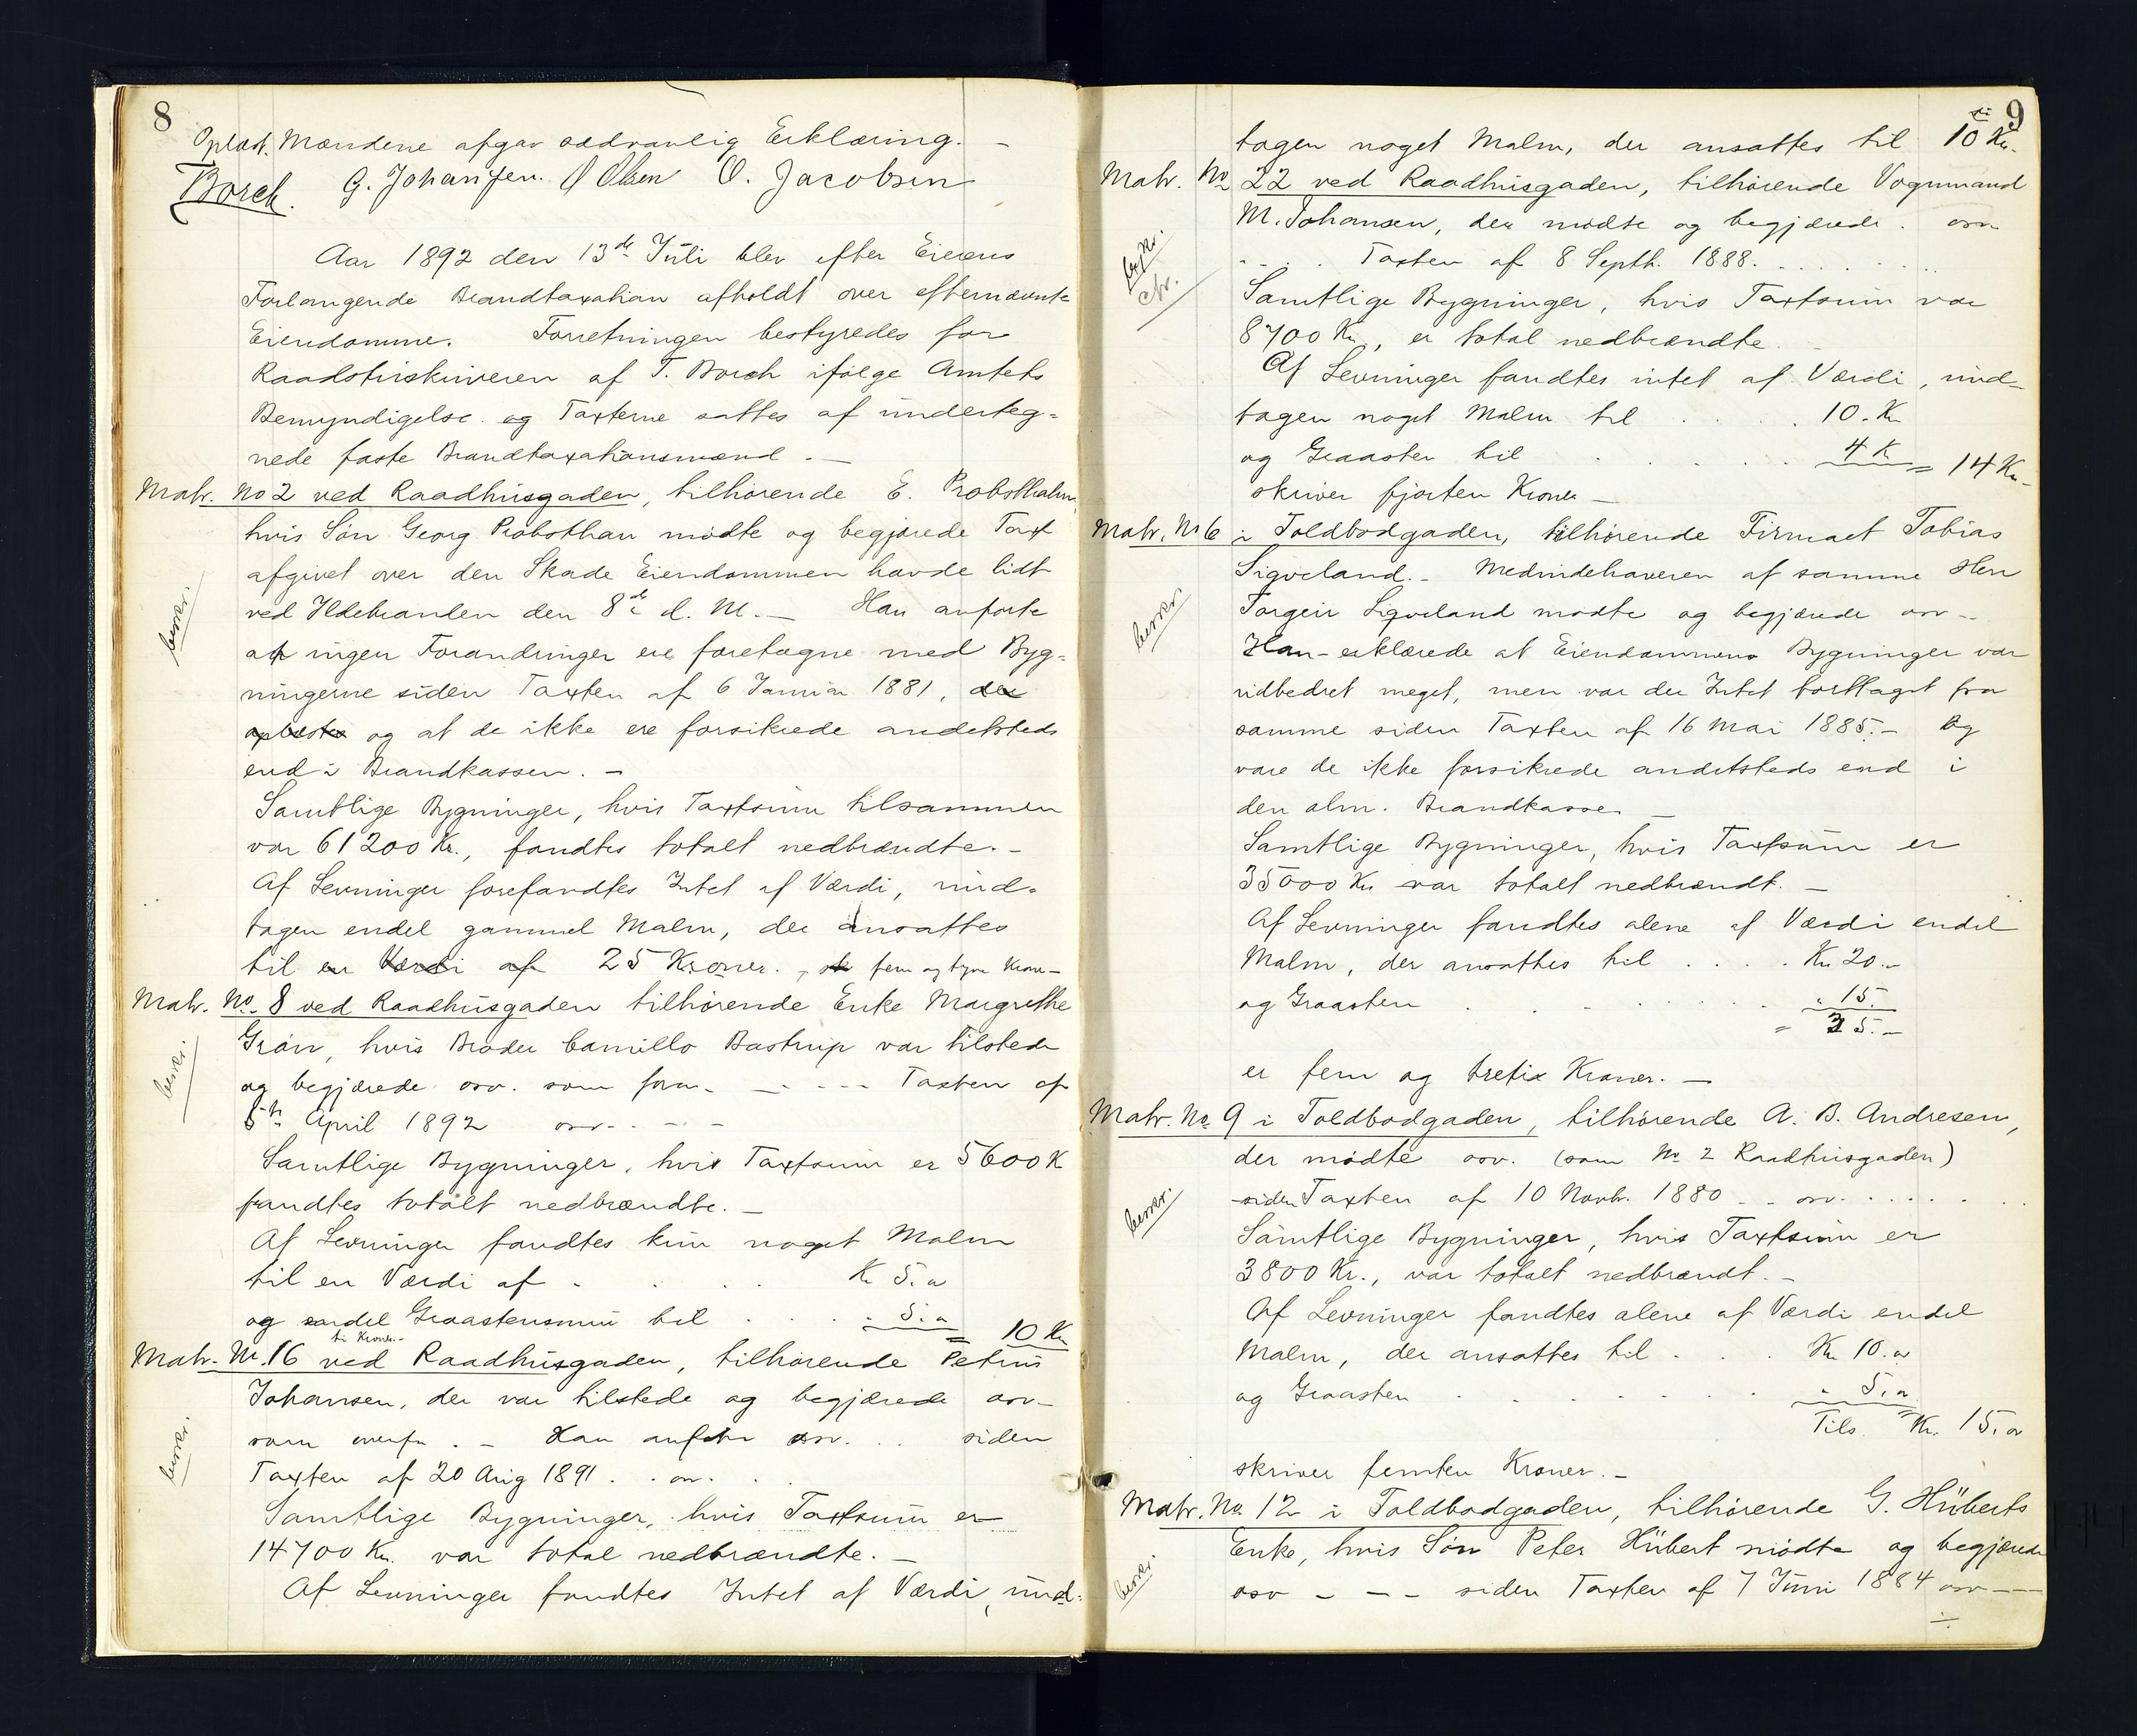 8
Oplæst. Mændene afgav sædvanlig Erklæring. -
Borch. G. Johansen. O Olsen O. Jacobsen
Aar 1892 den 13de Juli blev efter Eierens
Forlangende Brandtaxation afholdt over efternævnte
Eiendomme. Forretningen bestyredes for
Raadstuskriveren af T. Borch ifølge Amtets
Bemyndigelse og Taxterne sattes af underteg=
nede faste Brandtaxationsmænd. -
Matr. No 2 ved Raadhusgaden, tilhørende E. Probsthahn,
hvis Søn Georg Probsthan mødte og begjærede Taxt
afgivet over den Skade Eiendommen havde lidt
besvær.
ved Ildebranden den 8de d. M. - Han anførte
at ingen Forandringer ere foretagne med Byg=
ningerne siden Taxten af 6 Januar 1881, der
oplæstes og at de ikke ere forsikrede andetsteds
end i Brandkassen. -
Samtlige Bygninger, hvis Taxtsum tilsammen
var 61200 Kr., fandtes totalt nedbrændte. -
Af Levninger forefandtes Intet af Værdi, und=
tagen endel gammel Malm, der ansattes
til en Værdi af 25 Kroner., sk fem og tyve Kroner -
Matr. No. 8 ved Raadhusgaden tilhørende Enke Margrethe
Grøn, hvis Broder Camillo Bastrup var tilstede
besvær.
og begjærede osv. som foran. - - - - Taxten af
5te April 1892 osv. - - -
Samtlige Bygninger, hvis Taxtsum er 5600 K
fandtes totalt nedbrændte. -
Af Levninger fandtes kun noget Malm
til en Værdi af . . . . Kr 5. "
og endel Graastensmur til . . . . 5. "
= 10 Kr
ti Kroner. -
Matr. Nr. 16 ved Raadhusgaden, tilhørende Petrus
Johansen, der var tilstede og begjærede osv -
besvær.
som ovenfr. - Han anførte osv. . . siden
Taxten af 20 Aug 1891 . . osv. .
Samtlige Bygninger, hvis Taxtsum er
14700 Kr. var total nedbrændte. -
Af Levninger fandtes Intet af Værdi, und=
9
ti
tagen noget Malm, der ansattes til 10 Kr.
Matr. No 22 ved Raadhusgaden, tilhørende Vognmand
M. Johansen, der mødte og begjærede . osv
. . . . Taxten af 8 Septb. 1888. . . . . . .
Samtlige Bygninger, hvis Taxtsum var
8700 Kr, er total nedbrændte. -
Af Levninger fandtes intet af Værdi, und-
tagen noget Malm til . . . . 10. Kr
og Graasten til . . . . . 4 K = 14 Kr. -
skriver fjorten Kroner -
Matr. Nr 6 i Toldbodgaden, tilhørende Firmaet Tobias
Sigveland. - Medindehaveren af samme Herr
besvær.
Torgeir Sigveland mødte og begjærede osv -
Han - erklærede at Eiendommens Bygninger var
udbedret meget, men var der Intet borttaget fra
samme siden Taxten af 16 Mai 1885. - Og
vare de ikke forsikrede andetsteds end i
den alm. Brandkasse -
Samtlige Bygninger, hvis Taxtsum er
35000 Kr var totalt nedbrændt. -
Af Levninger fandtes alene af Værdi endel
Malm, der ansattes til . . . . Kr 20. -
og Graasten . . . . . . " 15.
= 35. -
er fem og treti Kroner. -
Matr. No. 9 i Toldbodgaden, tilhørende A. B. Andresen,
der mødte osv. (som Nr 2 Raadhusgaden)
besvær.
siden Taxten af 10 Novbr. 1880 - - osv. . . . . .
Samtlige Bygninger, hvis Taxtsum er
3800 Kr., var totalt nedbrændt. -
Af Levninger fandtes alene af Værdi endel
Malm, der ansattes til . . . Kr 10. "
og Graasten . . . . . . " 5. "
Tils. = Kr. 15. "
skriver femten Kroner. -
Matr. No. 12 i Toldbodgaden, tilhørende G. Hüberts
Enke, hvis Søn Peter Hübert mødte og begjærede
besvær.
osv - - - siden Taxten af 7 Juni 1884 osv - -